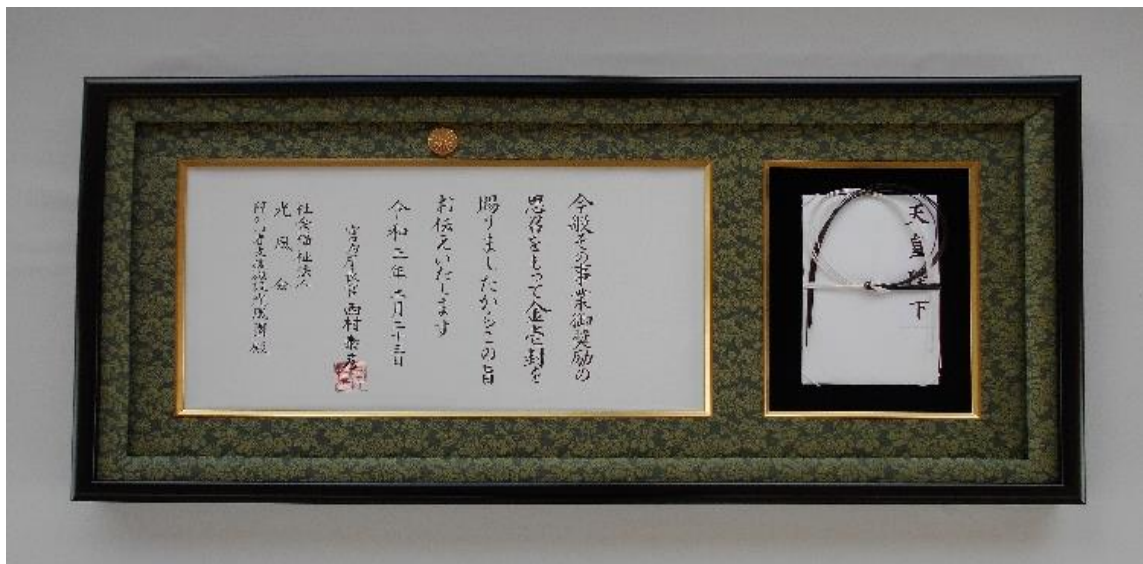 天皇陛下
今般その事業御奨励の
思召をもって金壱封を
賜りましたからこの旨
お伝えいたします
令和二年二月二十三日
宮内庁長官 西村泰彦
社会福祉法人
光風会
障害者支援施設 園殿